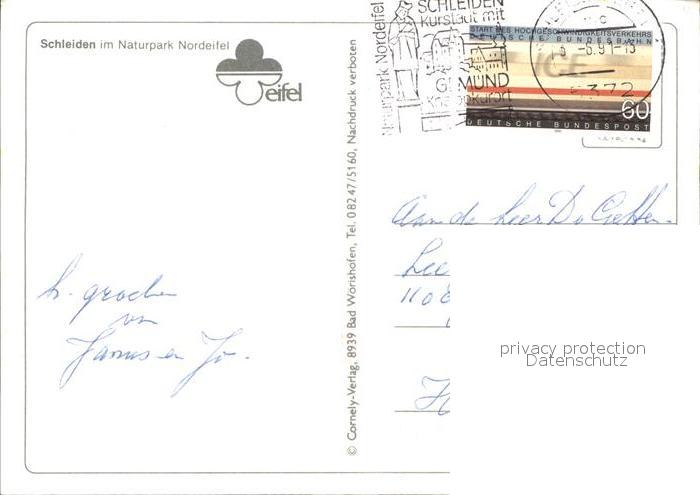 Schleiden im Naturpark Nordeifel
eifel
h. groeten
van
Jannes en Jo.
© Cornely-Verlag, 8939 Bad Wörishofen, Tel. 0 82 47/51 60, Nachdruck verboten
Naturpark Nordeifel
SCHLEIDEN
Kurstadt mit
GEMÜND
Kneippkurort
START DES HOCHGESCHWINDIGKEITSVERKEHRS
DEUTSCHE BUNDESBAHN
ICE
60
DEUTSCHE BUNDESPOST
-6.91-13
5372
Aan de heer
Lee
1108
H
privacy protection
Datenschutz